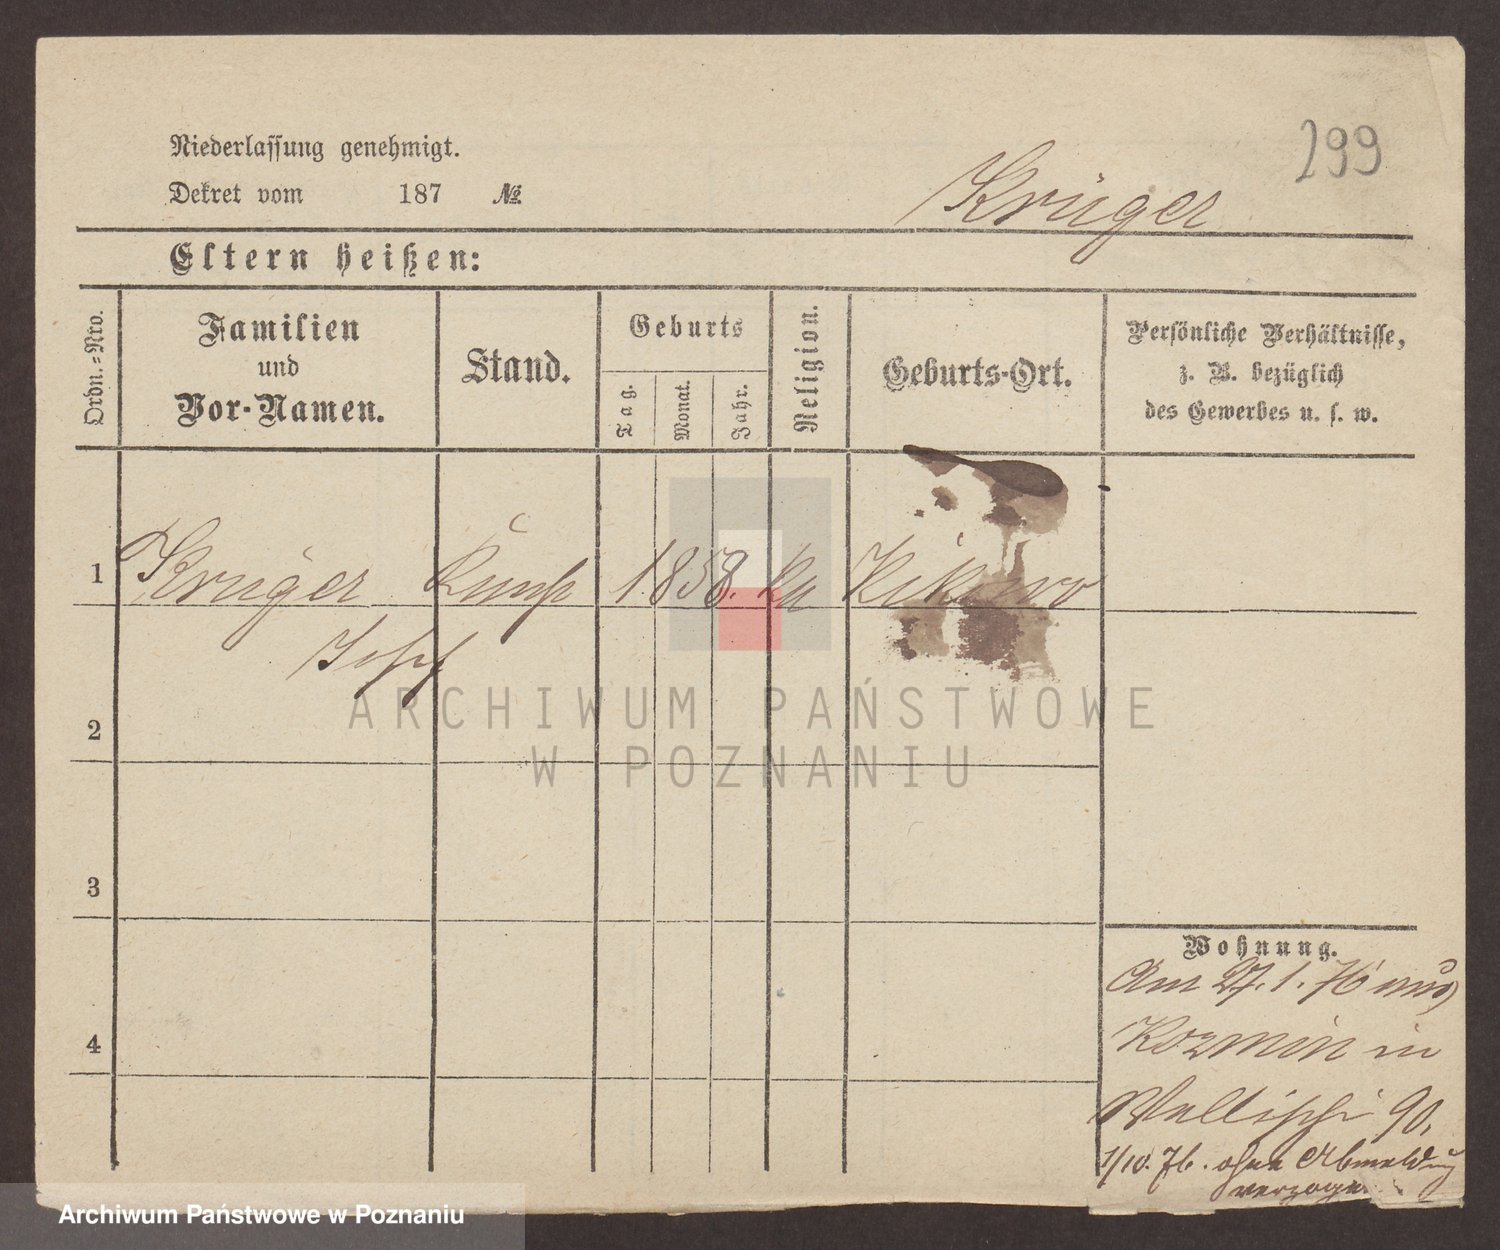 299
Niederlassung genehmigt.
Dekret vom 187 №
Krüger
Eltern heißen:
Ordn.=Nro.
Familien
und
Vor-Namen.
Stand.
Geburts
Tag.
Monat.
Jahr.
Religion.
Geburts-Ort.
Persönliche Verhältnisse,
z. B. bezüglich
des Gewerbes u. s. w.
1 Krüger 1858. ka
2
3
4
Wohnung.
Am 27. 1. 76 aus
Kozmin in
Wallischei 90.
1/10. 76. ohne Abmeldung
verzogen
ARCHIWUM PAŃSTWOWE
W POZNANIU
Archiwum Państwowe w Poznaniu